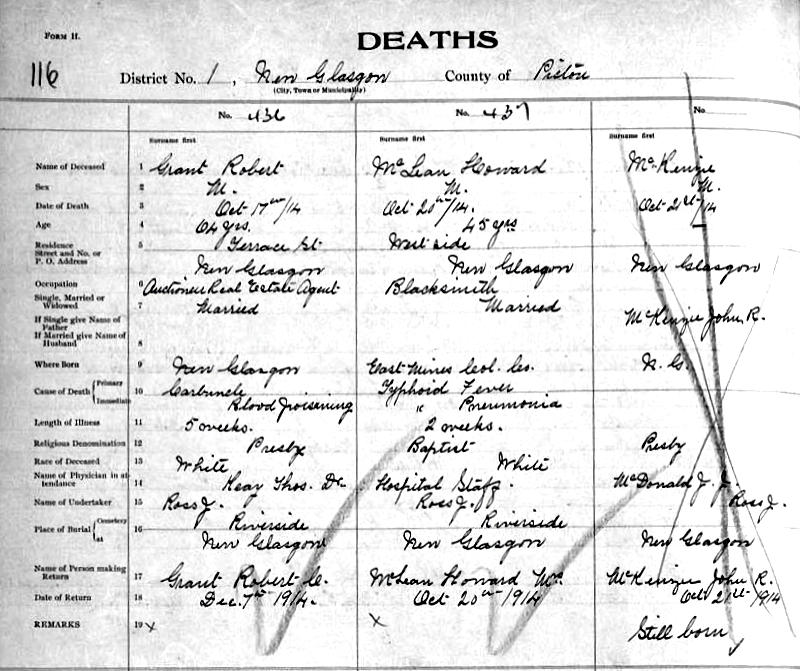 FORM H.
DEATHS
116
District No. 1, New Glasgow County of Pictou
(City, Town or Municipality)
No. 436 No. 437 No.
Surname first Surname first Surname first
Name of Deceased 1 Grant Robert McLean Howard McKenzie
Sex 2 M. M. M.
Date of Death 3 Oct 17th/14 Oct 20th/14. Oct 21st/14
Age 4 64 yrs. 45 yrs —
Residence
Street and No. or
P. O. Address
5 Terrace St West side
New Glasgow New Glasgow New Glasgow
Occupation 6 Auctioneer Real Estate Agent Blacksmith
Single, Married or
Widowed
7 Married Married
If Single give Name of
Father
McKenzie John R.
If Married give Name of
Husband
8
Where Born 9 New Glasgow East Mines Col. Co. N. G.
Cause of Death { Primary 10 Carbuncle Typhoid Fever
Immediate Blood Poisening " Pneumonia
Length of Illness 11 5 weeks. 2 weeks.
Religious Denomination 12 Presby Baptist Presby
Race of Deceased 13 White White
Name of Physician in at-
tendance
14 Kear Thos. Dr. Hospital Staff. McDonald J. J.
Name of Undertaker 15 Ross J. Ross J. Ross J.
Place of Burial { Cemetery 16 Riverside Riverside
at New Glasgow New Glasgow New Glasgow
Name of Person making
Return
17 Grant Robert C. McLean Howard Mrs McKenzie John R.
Date of Return 18 Dec. 7th 1914. Oct 20th 1914 Oct 21st 1914
REMARKS 19 x x Still born